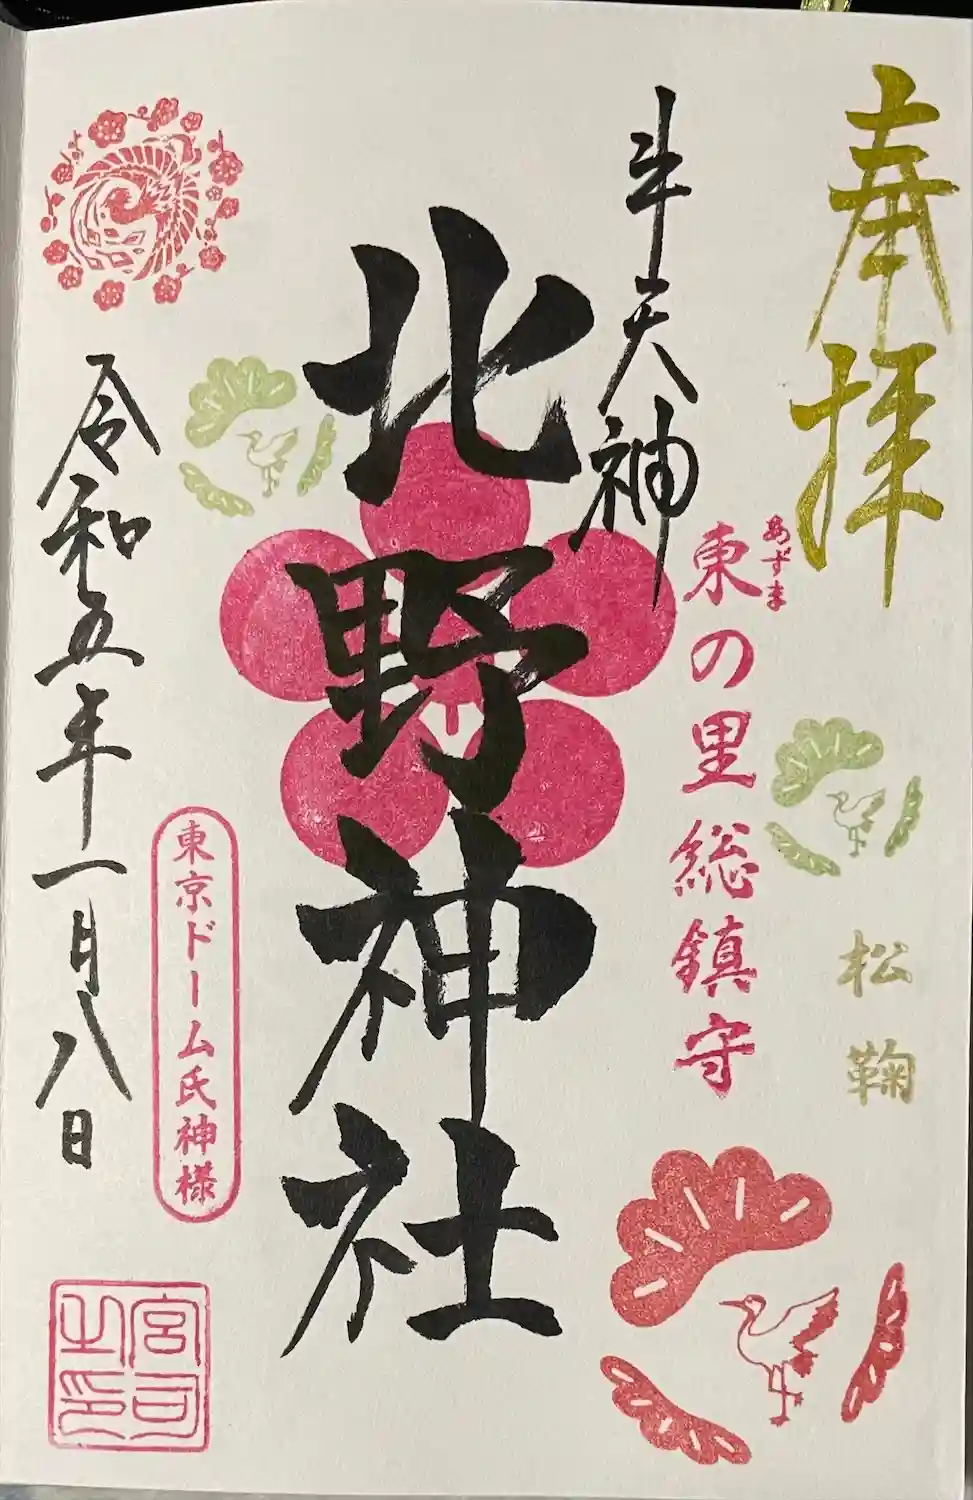 奉拝
松鞠
東の里総鎮守
あずま
牛天神
北野神社
東京ドーム氏神様
令和五年一月八日
宮司之印